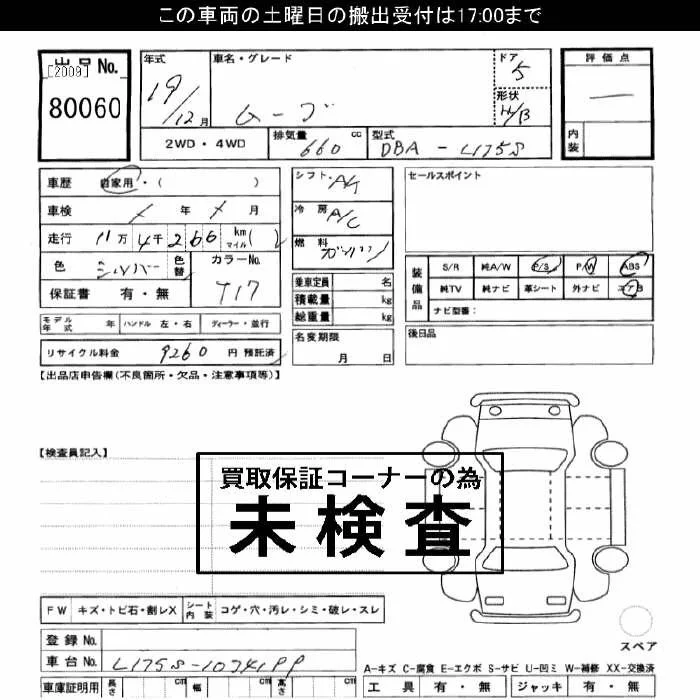 この車両の土曜日の搬出受付は17:00まで
出品 No.
[2009]
80060
年式
19/12 月
車名・グレード
ムーブ
ドア
5
形状
H/B
評価点
内装
2WD・4WD
排気量 660 cc
型式 DBA - L175S
車歴 自家用・( )
車検 年 月
走行 11万 4千 266 km マイル( )
色 シルバー 色替
カラーNo. T17
保証書 有・無
シフト A/T
冷房 A/C
燃料 ガソリン
乗車定員 名
積載量 kg
総重量 kg
セールスポイント
装備品
S/R 純A/W P/S P/W ABS
純TV 純ナビ 革シート 外ナビ エアB
ナビ型番:
モデル年式 年 ハンドル 左・右 ディーラー・並行
リサイクル料金 9260 円 預託済
名変期限
月 日
後日品
【出品店申告欄(不良箇所・欠品・注意事項等)】
【検査員記入】
買取保証コーナーの為
未検査
FW キズ・トビ石・割レX シート内装 コゲ・穴・汚レ・シミ・破レ・スレ
登録 No.
車台 No.
スペア
A-キズ C-腐食 E-エクボ S-サビ U-凹ミ W-補修 XX-交換済
車庫証明用 長さ cm 幅 cm 高さ cm
工具 有・無 ジャッキ 有・無